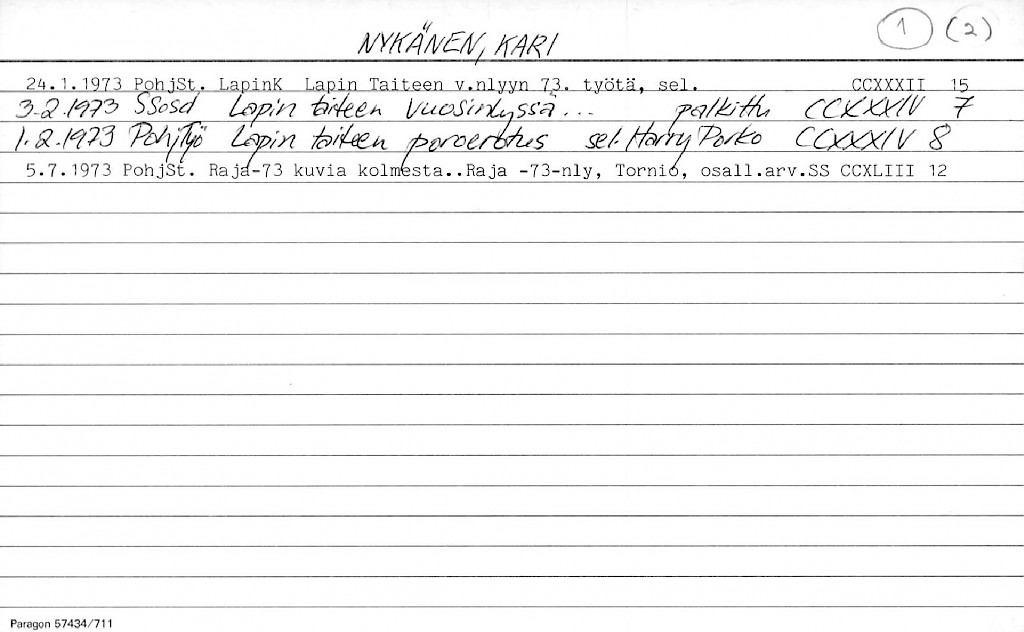 NYKÄNEN, KARI 1 (2)
24.1.1973 PohjSt. LapinK Lapin Taiteen v.nlyyn 73. työtä, sel. CCXXXII 15
3.2.1973 SSosd Lapin taiteen Vuosinlyssä... palkittu CCXXXIV 7
1.2.1973 PohjTyö Lapin taiteen poroerotus sel. Harry Porko CCXXXIV 8
5.7.1973 PohjSt. Raja-73 kuvia kolmesta..Raja -73-nly, Tornio, osall.arv.SS CCXLIII 12
Paragon 57434/711